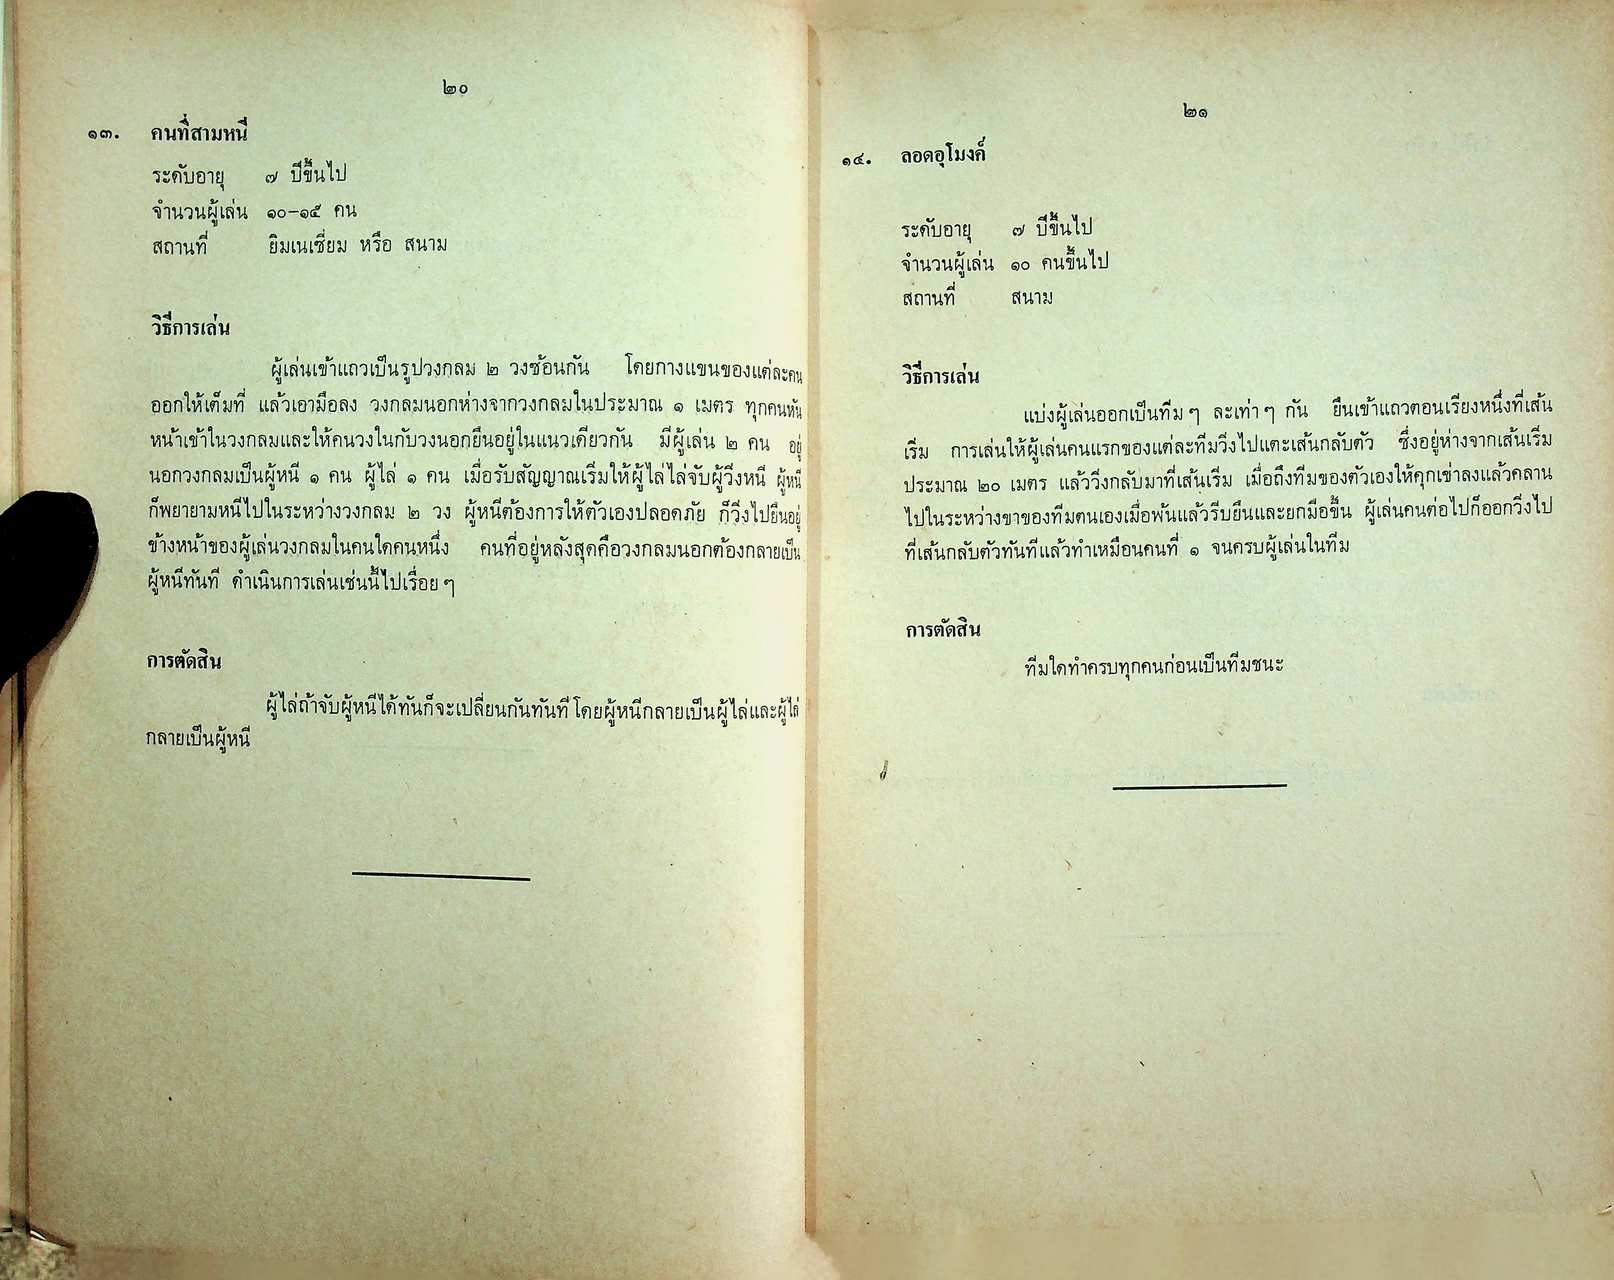 ๒๐
๑๓. คนที่สามหนี
ระดับอายุ ๗ ปีขึ้นไป
จำนวนผู้เล่น ๑๐–๑๕ คน
สถานที่ ยิมเนเซี่ยม หรือ สนาม
วิธีการเล่น
ผู้เล่นเข้าแถวเป็นรูปวงกลม ๒ วงซ้อนกัน โดยกางแขนของแต่ละคน
ออกให้เต็มที่ แล้วเอามือลง วงกลมนอกห่างจากวงกลมในประมาณ ๑ เมตร ทุกคนหัน
หน้าเข้าในวงกลมและให้คนวงในกับวงนอกยืนอยู่ในแนวเดียวกัน มีผู้เล่น ๒ คน อยู่
นอกวงกลมเป็นผู้หนี ๑ คน ผู้ไล่ ๑ คน เมื่อรับสัญญาณเริ่มให้ผู้ไล่ไล่จับผู้วิ่งหนี ผู้หนี
ก็พยายามหนีไปในระหว่างวงกลม ๒ วง ผู้หนีต้องการให้ตัวเองปลอดภัย ก็วิ่งไปยืนอยู่
ข้างหน้าของผู้เล่นวงกลมในคนใดคนหนึ่ง คนที่อยู่หลังสุดคือวงกลมนอกต้องกลายเป็น
ผู้หนีทันที ดำเนินการเล่นเช่นนี้ไปเรื่อย ๆ
การตัดสิน
ผู้ไล่ถ้าจับผู้หนีได้ทันก็จะเปลี่ยนกันทันที โดยผู้หนีกลายเป็นผู้ไล่และผู้ไล่
กลายเป็นผู้หนี
๒๑
๑๔. ลอดอุโมงค์
ระดับอายุ ๗ ปีขึ้นไป
จำนวนผู้เล่น ๑๐ คนขึ้นไป
สถานที่ สนาม
วิธีการเล่น
แบ่งผู้เล่นออกเป็นทีม ๆ ละเท่า ๆ กัน ยืนเข้าแถวตอนเรียงหนึ่งที่เส้น
เริ่ม การเล่นให้ผู้เล่นคนแรกของแต่ละทีมวิ่งไปแตะเส้นกลับตัว ซึ่งอยู่ห่างจากเส้นเริ่ม
ประมาณ ๒๐ เมตร แล้ววิ่งกลับมาที่เส้นเริ่ม เมื่อถึงทีมของตัวเองให้คุกเข่าลงแล้วคลาน
ไปในระหว่างขาของทีมตนเองเมื่อพ้นแล้วรีบยืนและยกมือขึ้น ผู้เล่นคนต่อไปก็ออกวิ่งไป
ที่เส้นกลับตัวทันทีแล้วทำเหมือนคนที่ ๑ จนครบผู้เล่นในทีม
การตัดสิน
ทีมใดทำครบทุกคนก่อนเป็นทีมชนะ